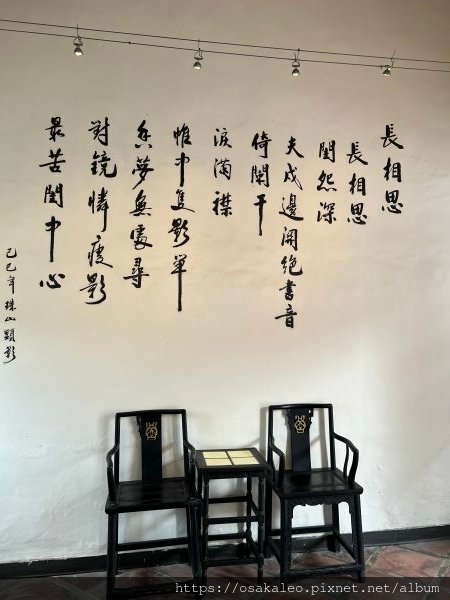 長相思
長相思
閨怨深
夫戍邊關絕書音
倚闌干
淚滿襟
帷中隻影單
夢無處尋
對鏡憐瘦影
最苦閨中心
己巳年珠山顯影
https://osakaleo.pixnet.net/album